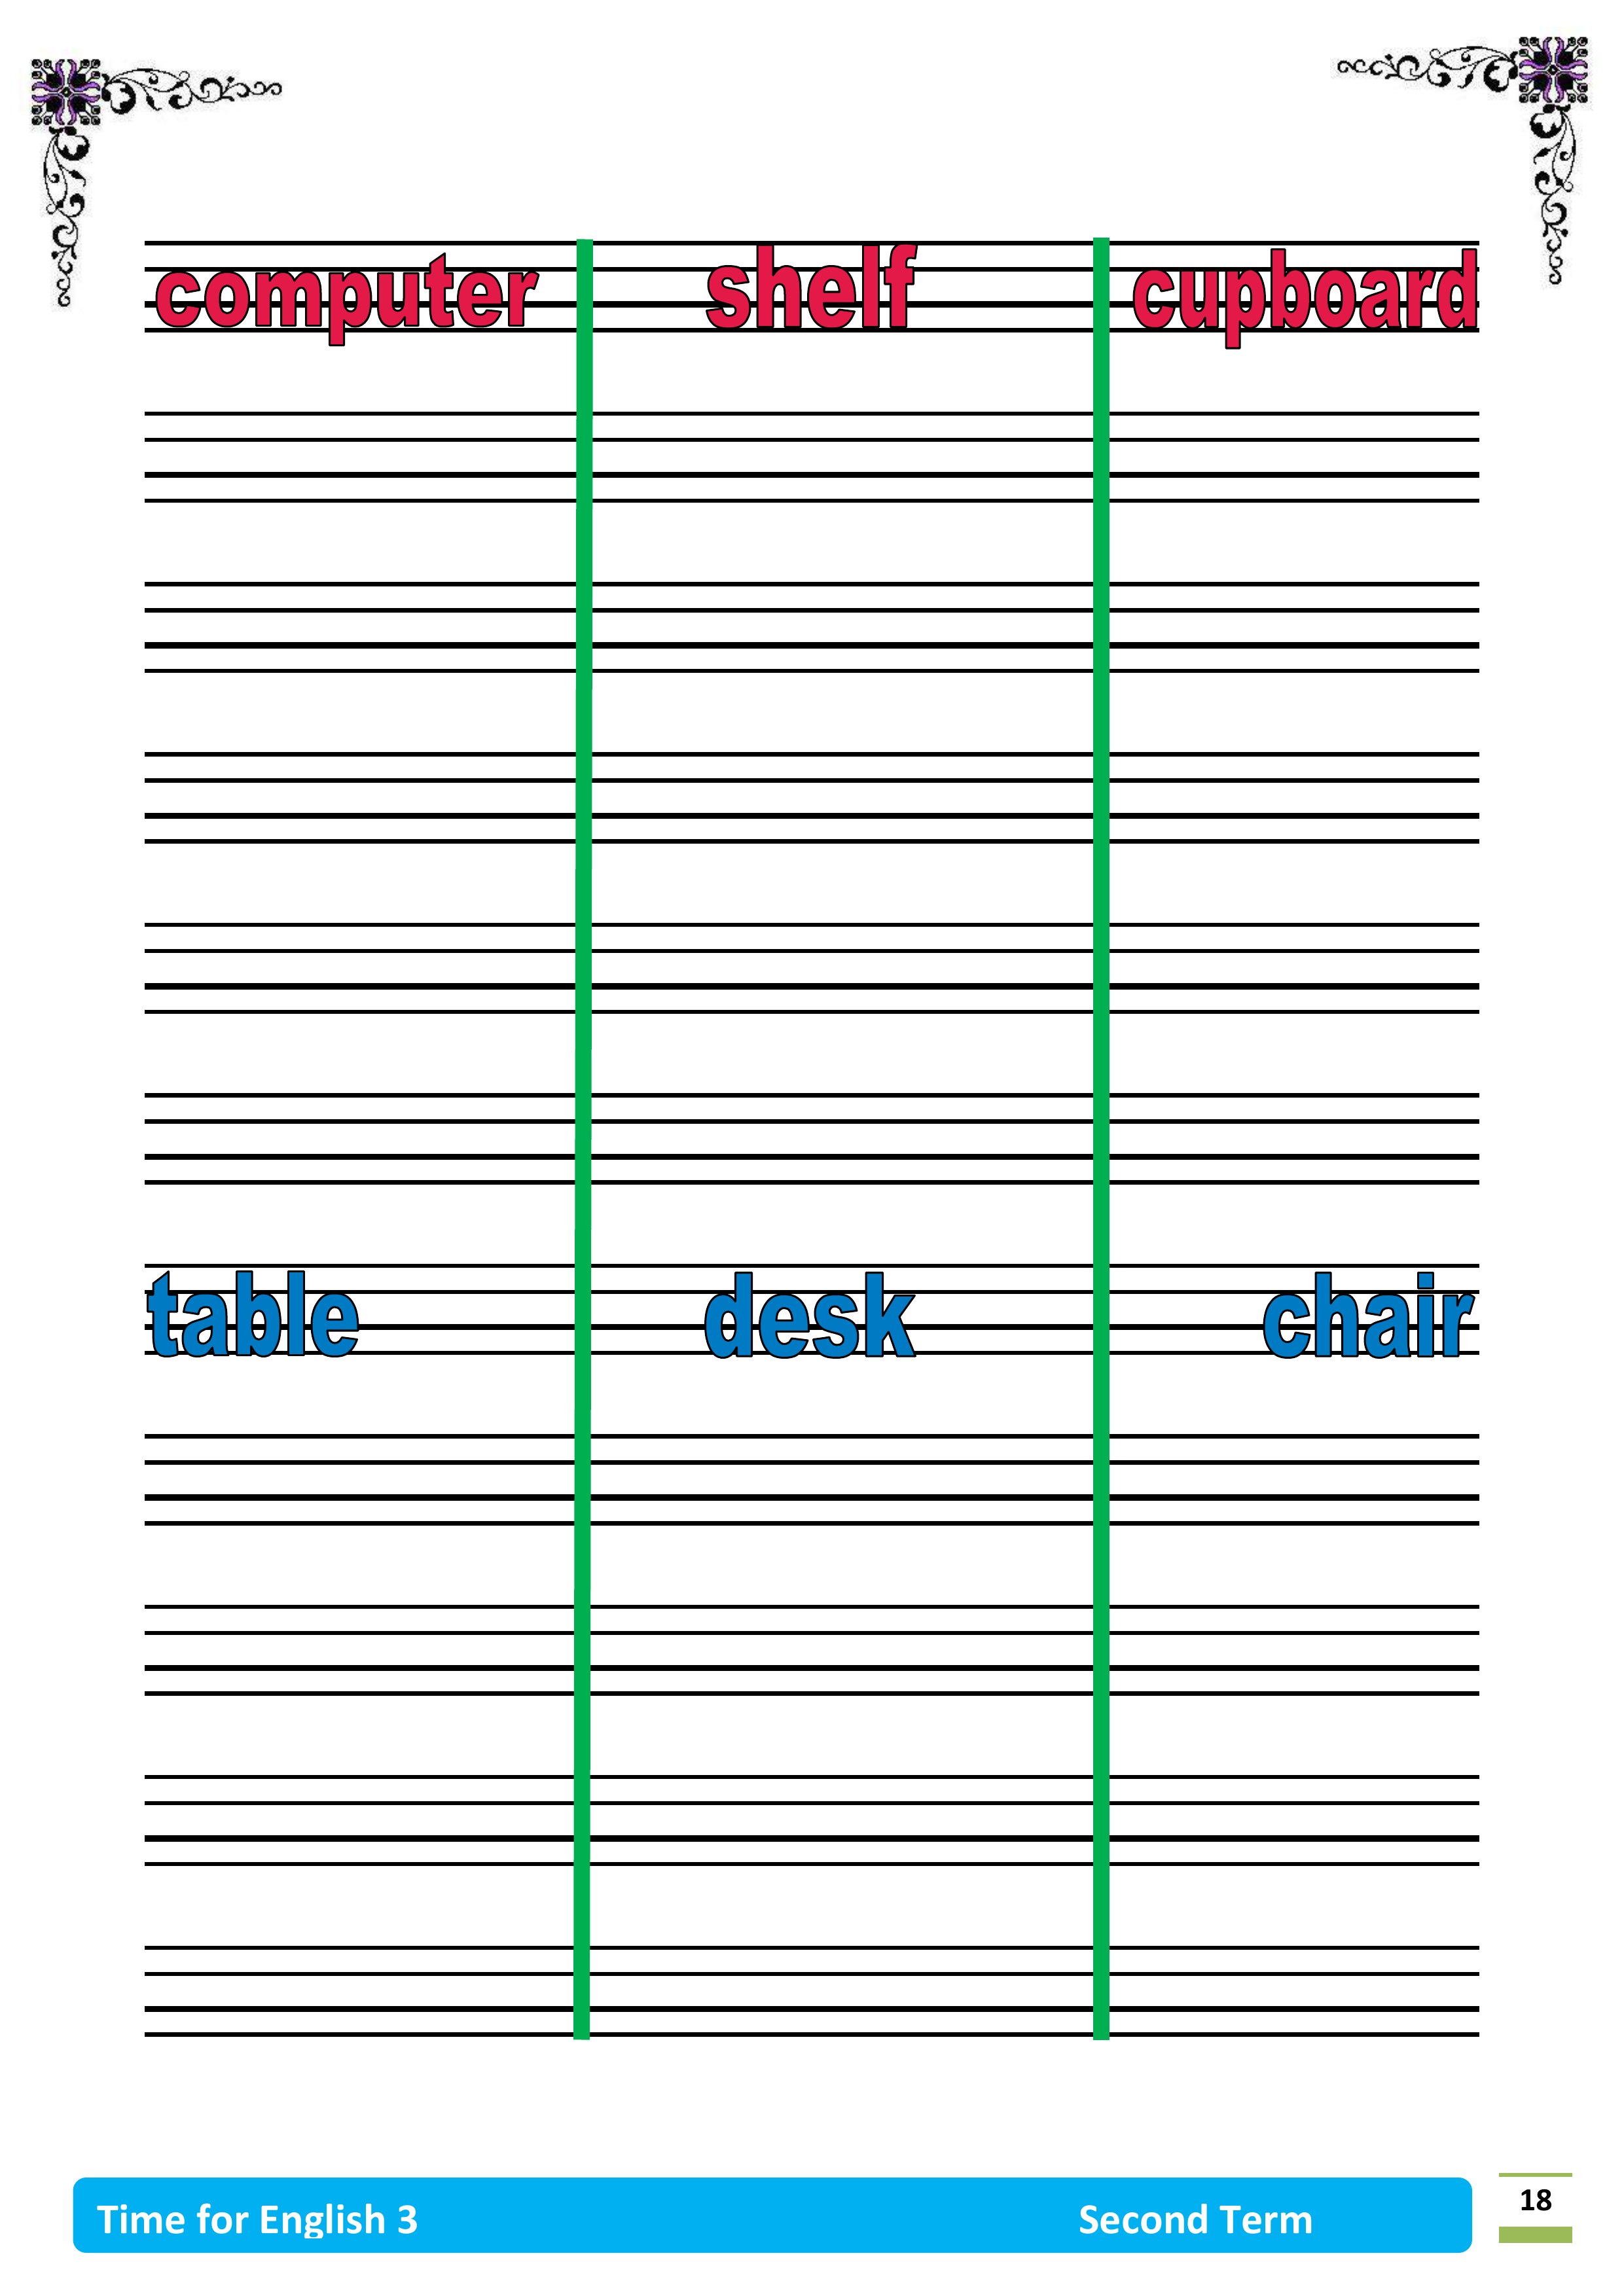 computer shelf cupboard
table desk chair
Time for English 3 Second Term
18